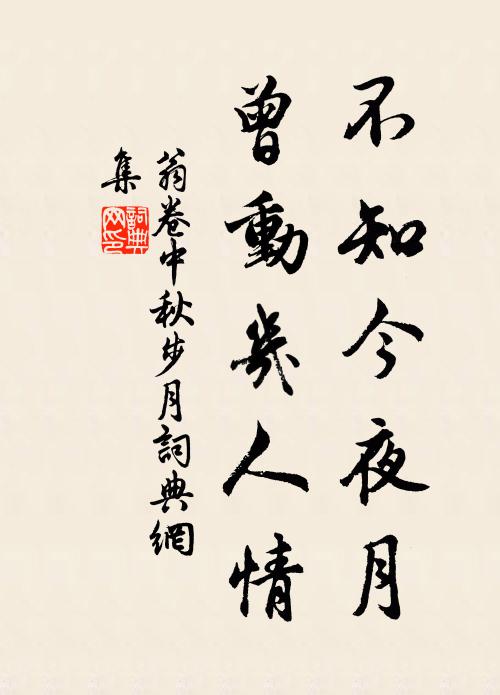 不知今夜月
曾動幾人情
翁卷中秋步月詞典網
集
詞典網印